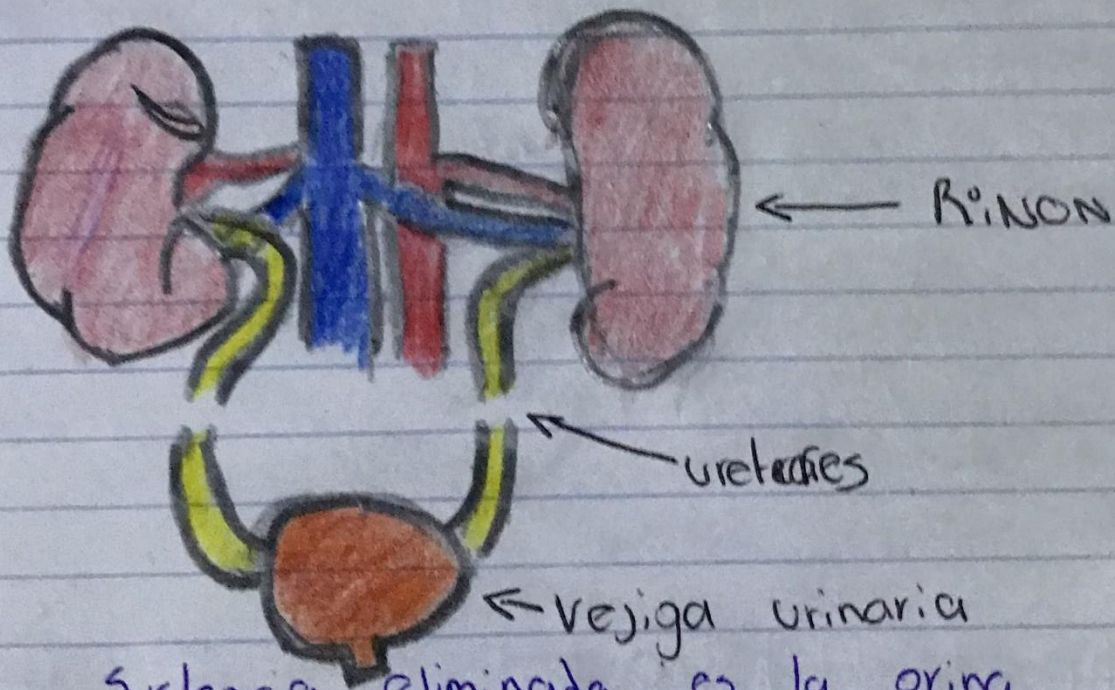 RiNON
ureteres
vejiga urinaria
eliminada es la orina